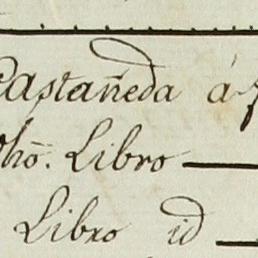 Castañeda á
dhõ. Libro
Libro id